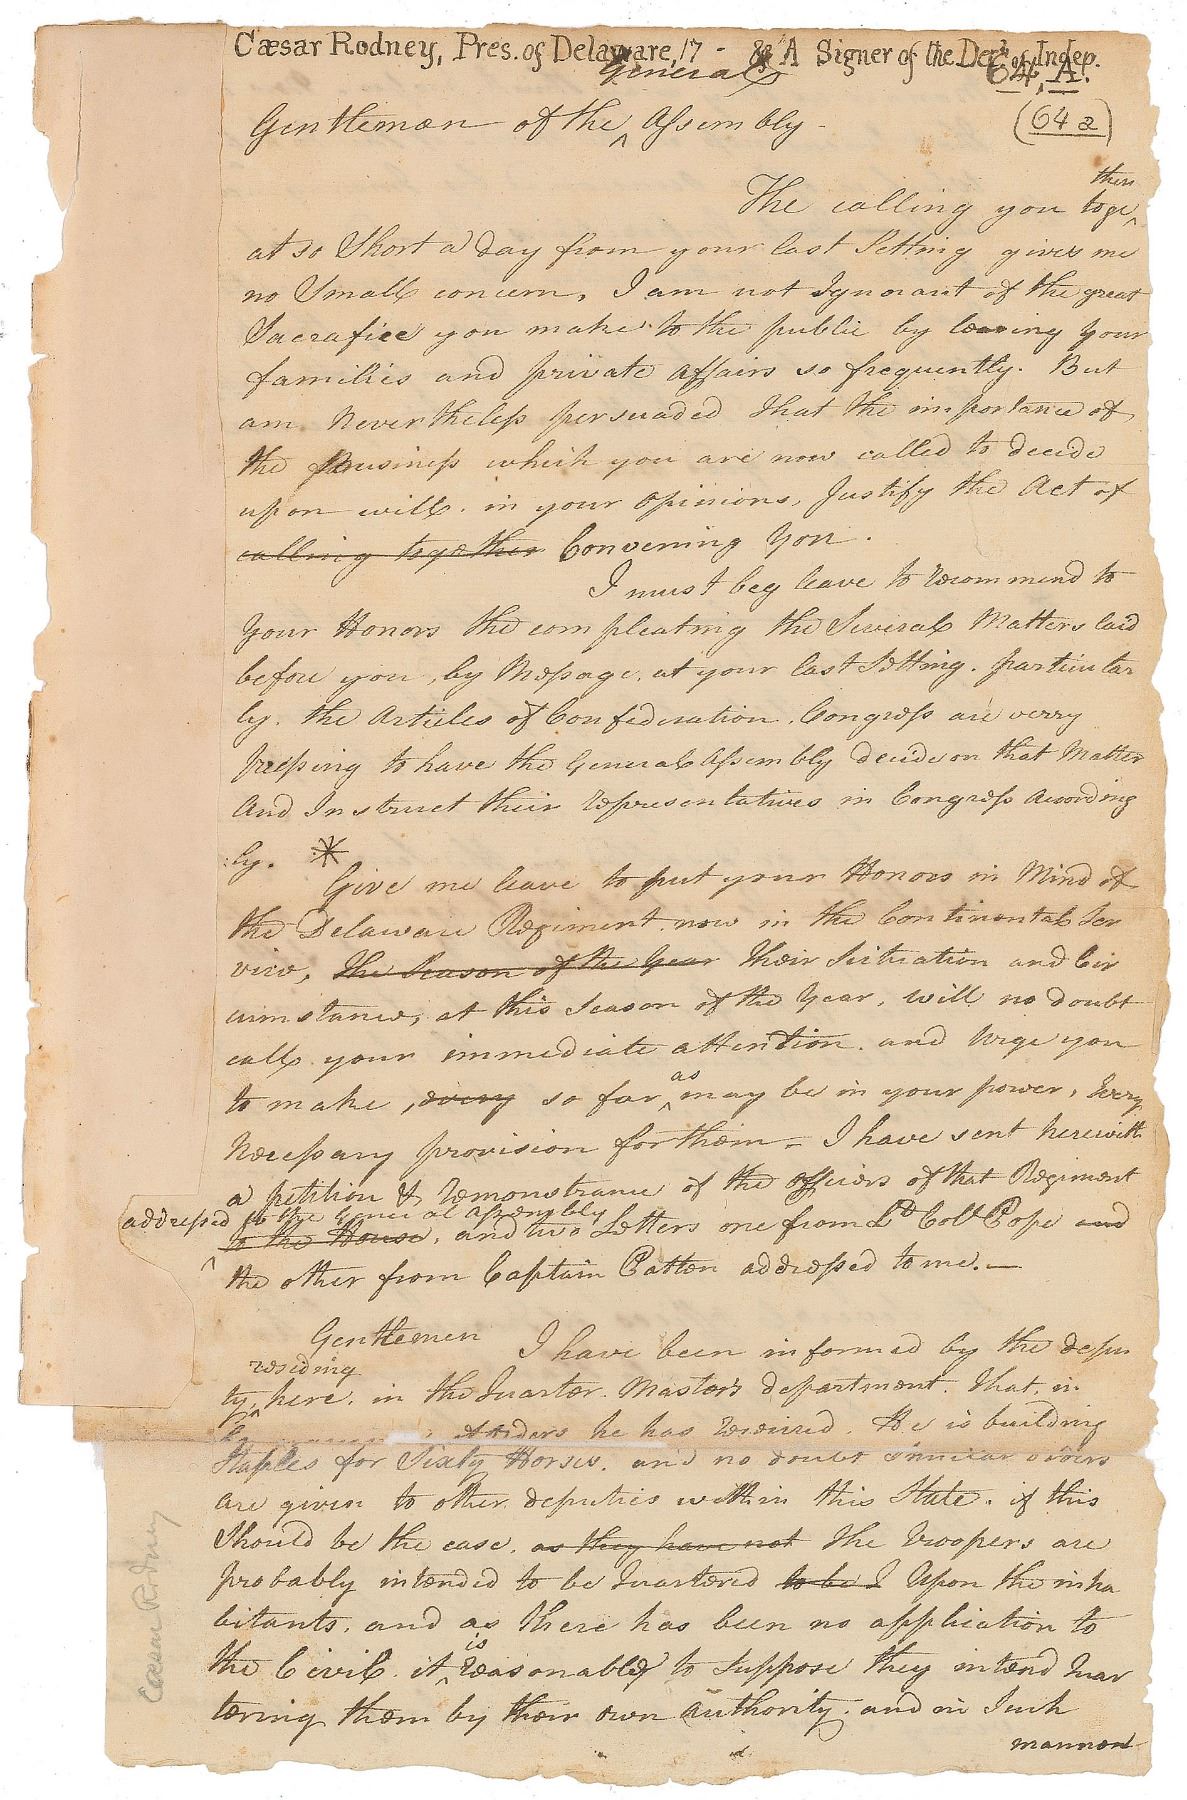 Cæsar Rodney, Pres. of Delaware, 17 - & A Signer of the Dec. of Indep.
64, A.
General
Gentlemen of the ^ Assembly -
(64 a)
ther
The calling you toge ^
at so Short a day from your last Setting gives me
no Small concern, I am not Ignorant of the great
Sacrafice you make to the public by leaving your
families and private affairs so frequently. But
am Nevertheless persuaded that the importance of
the Business which you are now called to decide
upon will in your opinions, Justify the Act of
calling together Convening You.
I must beg leave to recommend to
your Honors the compleating the Several Matters laid
before you, by Message, at your last Setting. particular
ly. the Articles of Confederation. Congress are verry
pressing to have the General Assembly decide on that Matter
And Instruct their representatives in Congress According
:ly. *
Give me leave to put your Honors in Mind of
the Delaware Regiment now in the Continental Ser
vice, the Season of the Year Their Situation and Cir
cumstances, at this Season of the Year, will no doubt
call your immediate attention. and Urge you
as
to make, every so far ^ may be in your power, every
Necessary provision for them = I have sent herewith
a petition & remonstrance of the officers of that Regiment
addressed to the General Assembly
^ to the House, and two Letters one from Lt Colo Pope and
the other from Captain Patten addressed to me. —
Gentlemen I have been informed by the depu
residing
ty ^ here, in the Quarter Masters department. That, in
orders he has received. He is building
Stables for Sixty Horses, and no doubt similar orders
are given to other deputies within this State. if this
Should be the case. as they have not the Troopers are
probably intended to be Quartered to be I Upon the inha
bitants, and as there has been no application to
is
the Civil. it ^ reasonable to suppose they intend Quar
tering them by their own authority. and in Such
manner
Cæsar Rodney